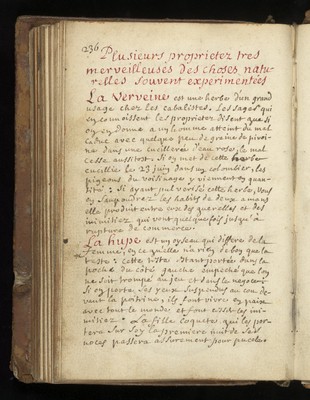 236
Plusieurs proprietez tres
merveilleuses des choses natu-
relles souvent experimentées
La Verveine est une herbe d'un grand
usage chez les cabalistes. Les sages qui
en connoissent les proprietez disent que si
on en donne a un homme atteint du mal
caduc avec quelque peu de graine de pivoi-
ne dans une cueillerée d'eau rose, le mal
cesse aussitost. Si on met de cette herbe
cueillie le 23 juin dans un colombier, les
pigeons du voisinage y viennent en quan-
tité : Si ayant pulverisé cette herbe, vous
en saupoudrez les habits de deux amans
elle produit entre eux des querelles et des
inimitiez qui vont quelque fois jusqu'à
rupture de commerce.
La hupe est un oyseau qui differe de la
femme, en ce qu'elle n'a rien de bon que la
teste : cette teste estant portée dans la
poche du côté gauche empeche que l'on
ne soit trompé au jeu et dans le negoce
Si on porte ses yeux suspendus au cou de-
vant la poitrine, ils font vivre en paix
avec tout le monde, et font les ini-
mitiez. La fille coquete qui les por-
tera sur soy la premiere nuit de ses
noces passera assurement pour pucelle